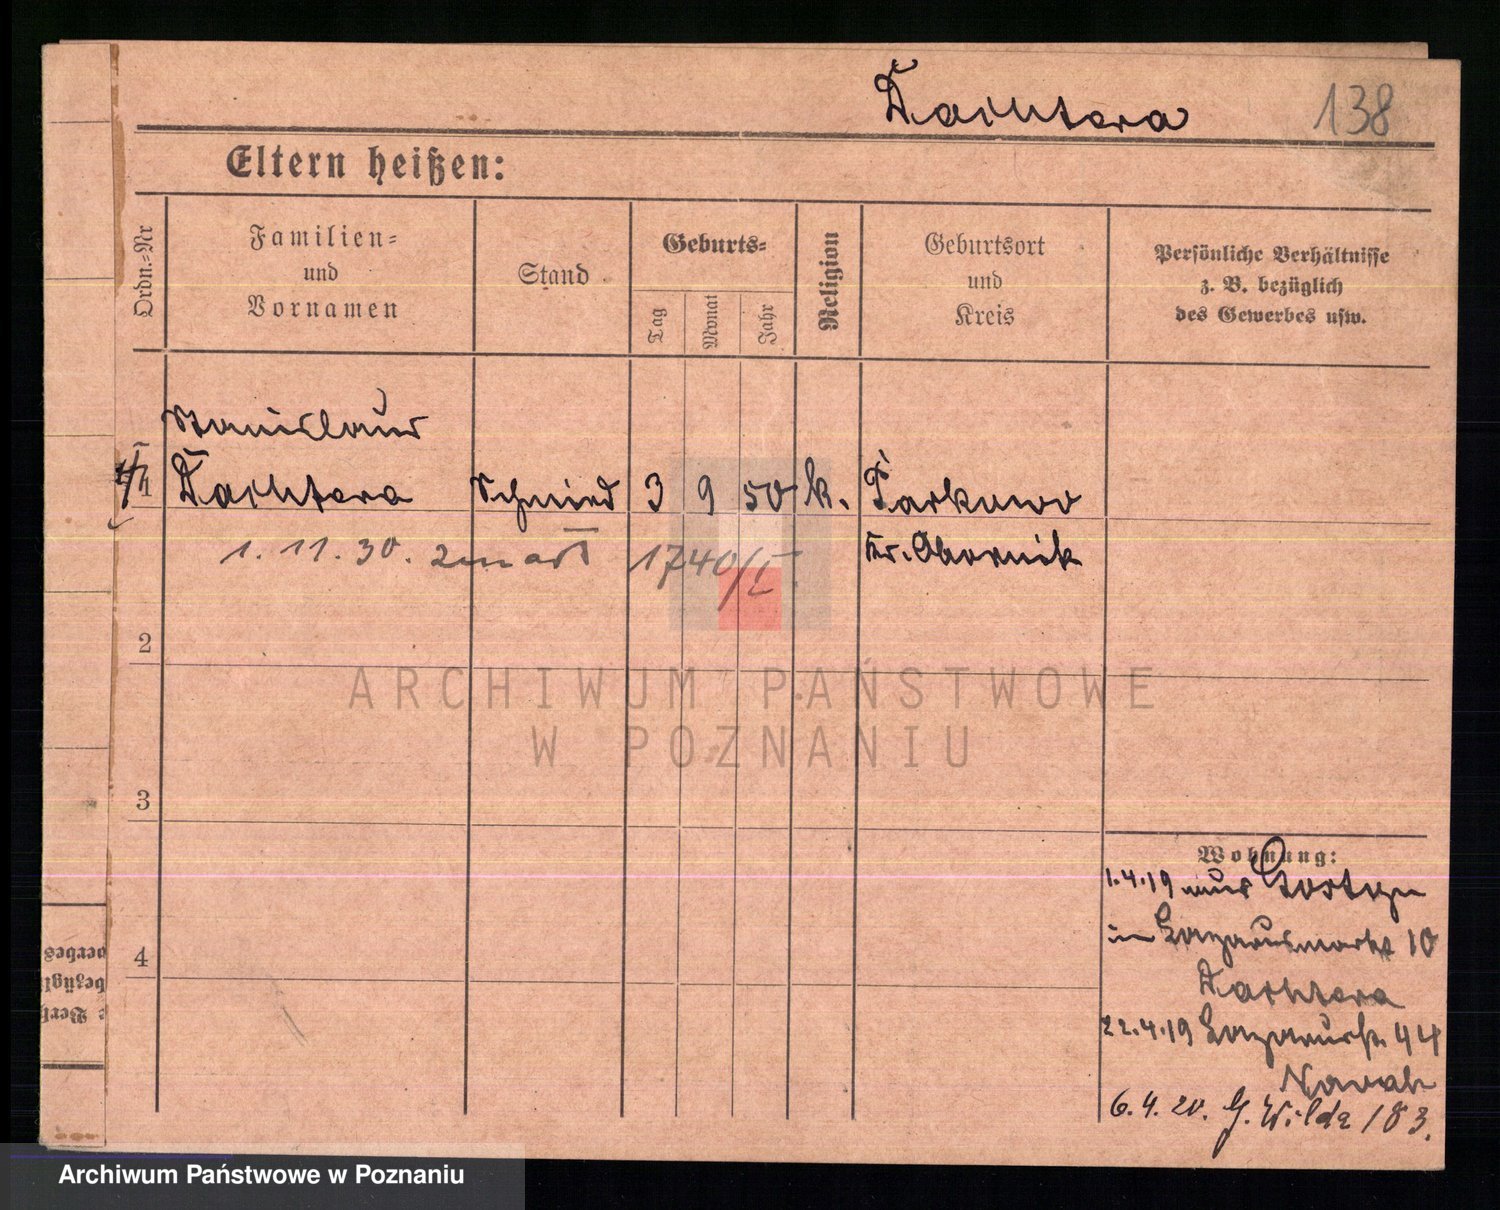 Dachtera
138
Eltern heißen:
Ordn.-Nr
Familien- und Vornamen
Stand
Geburts-
Tag
Monat
Jahr
Religion
Geburtsort und Kreis
Persönliche Verhältnisse z. B. bezüglich des Gewerbes usw.
Stanislaus
1 Dachtera Schmied 3 9 50 k. Parkowo
Kr. Obornik
1. 11. 30. zmarł 1740/I
2
3
4
ARCHIWUM PAŃSTWOWE
W POZNANIU
Wohnung:
1.4.19 aus
in Lazarusmarkt 10
Dachtera
22.4.19 Lazarusstr. 44
Nowak
6.4.20. G. Wilda 183.
Archiwum Państwowe w Poznaniu